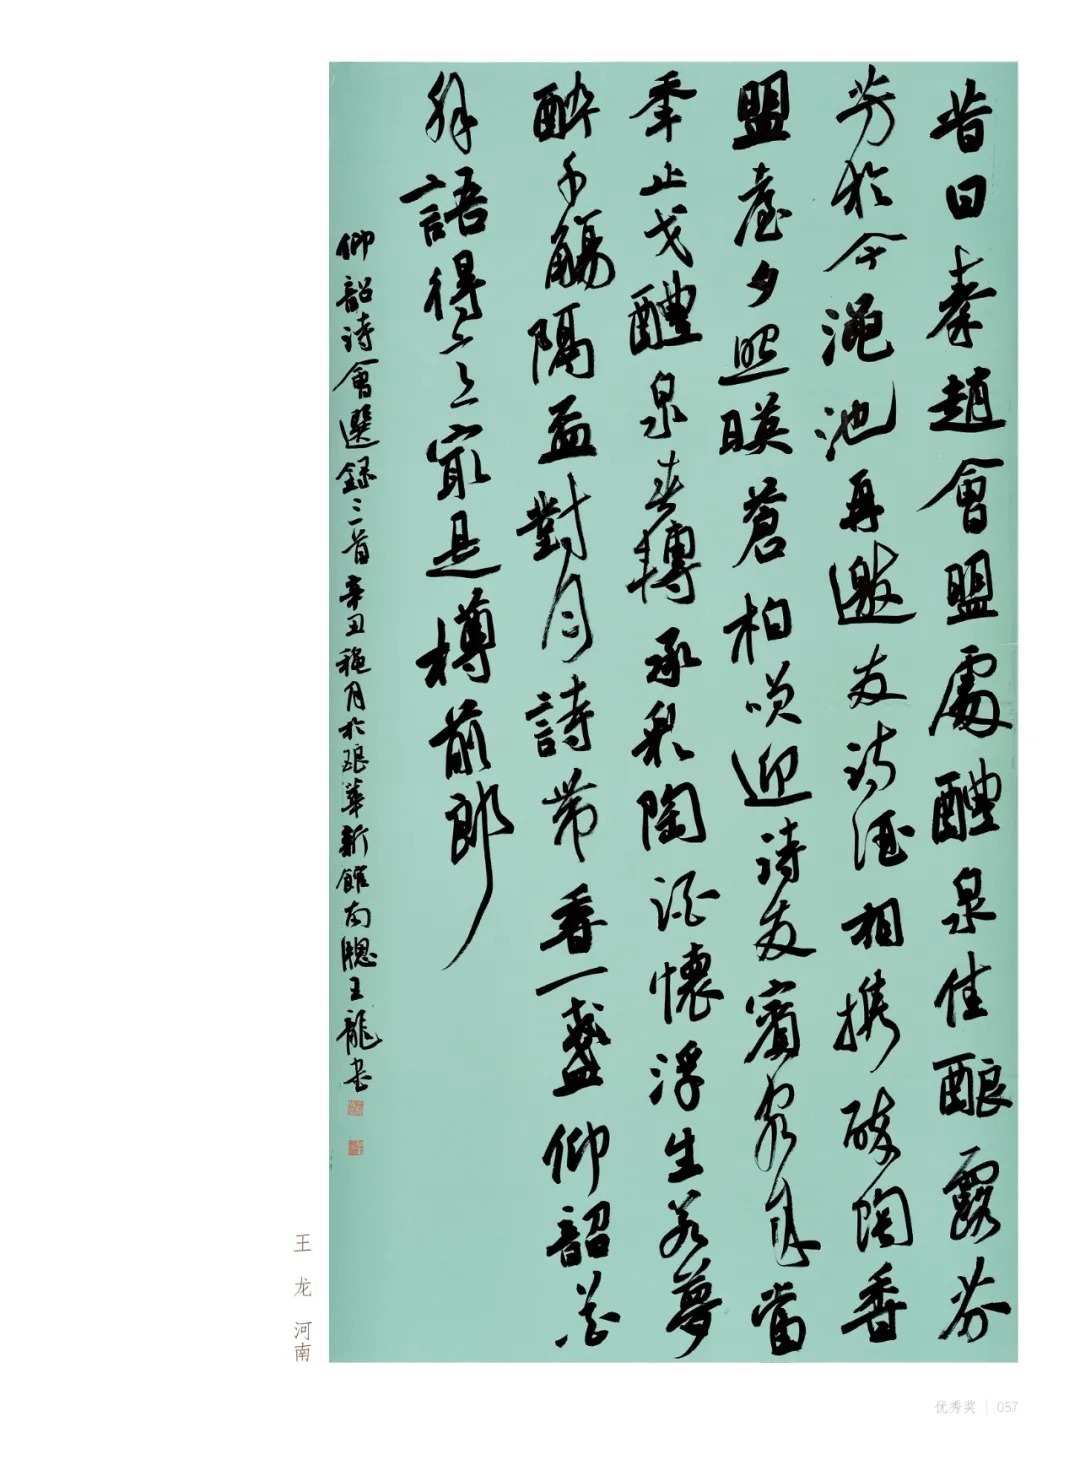 昔日秦趙會盟處醴泉佳釀露芬
芳於今澠池再邀友詩酒相携醉陶香
盟臺夕照暎蒼柏咲迎詩友賓客當
年止戈醴泉轉承陶酒懷浮生若夢
醉千觴隔盃對月詩帶香一盞仰韶花
解語得意最是樽前郎
仰韶诗會選録三首辛丑穐月於琅華新館南牕王龍书
王龙 河南
优秀奖 | 057